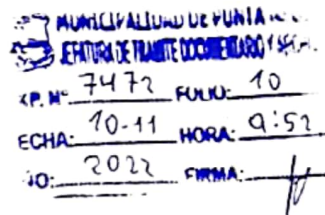 MUNICIPALIDAD DE PUNTA
JEFATURA DE TRAMITE DOCUMENTARIO Y
XP. N° 7472 FOLIO: 10
ECHA: 10-11 HORA: 9:52
ÑO: 2022 FIRMA: